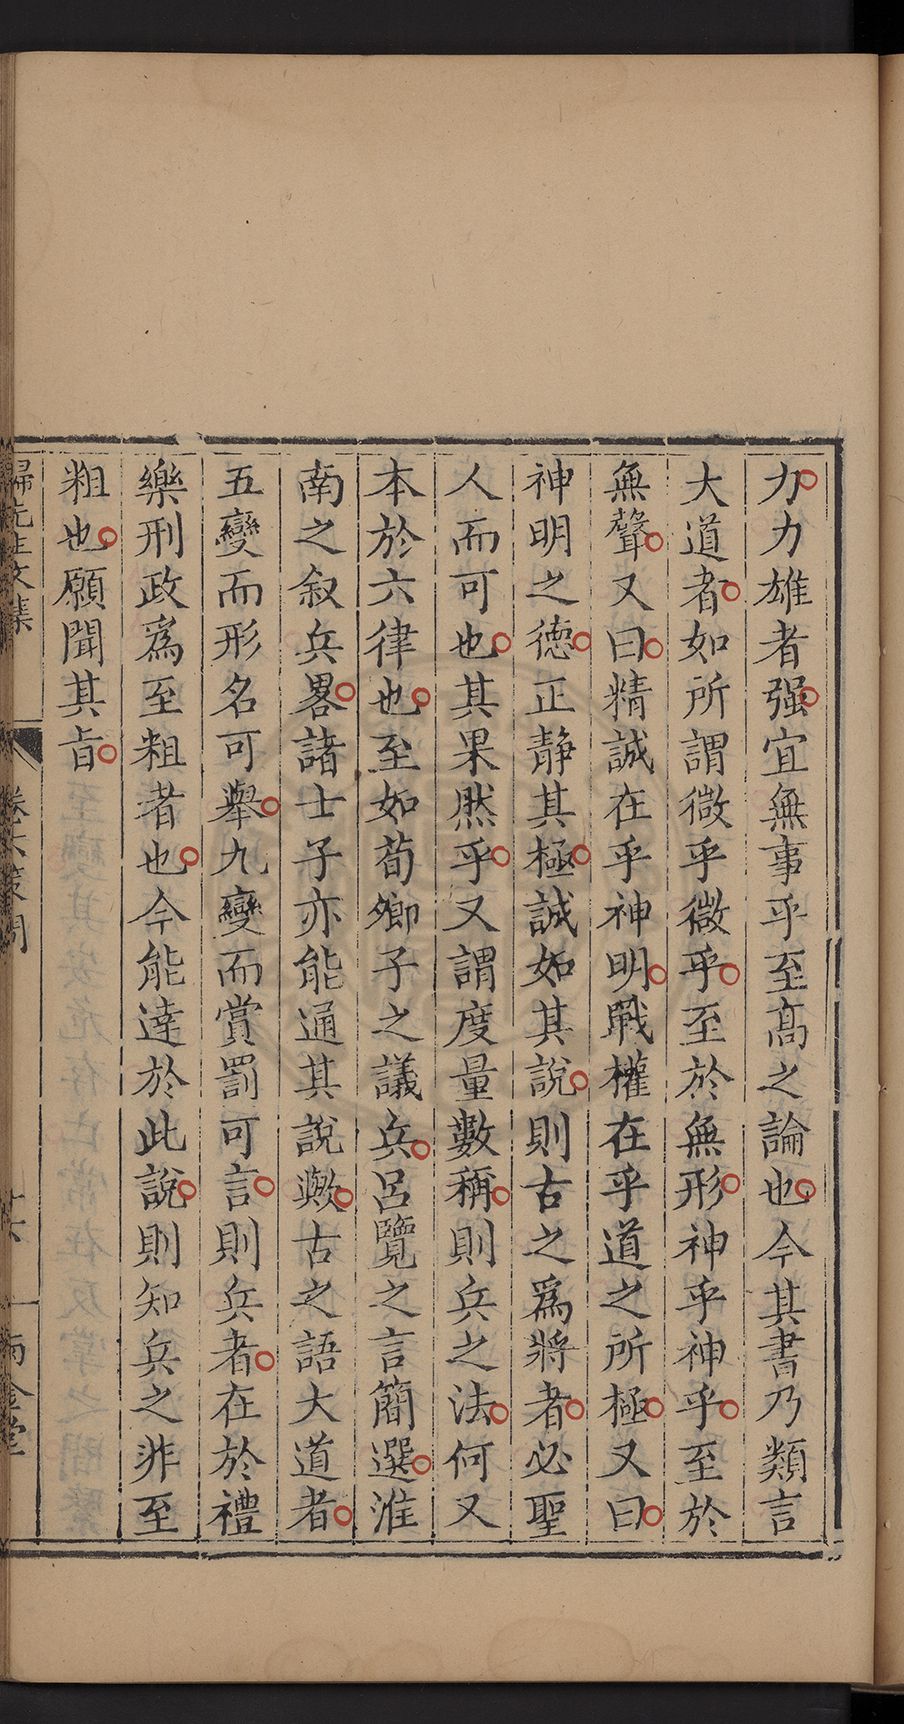 力力雄者强宜無事乎至高之論也今其書乃類言
大道者如所謂微乎微乎至於無形神乎神乎至於
無聲又曰精誠在乎神明戰權在乎道之所極又曰
神明之德正靜其極誠如其說則古之爲將者必聖
人而可也其果然乎又謂度量數稱則兵之法何又
本於六律也至如荀卿子之議兵呂覽之言簡選淮
南之叙兵畧諸士子亦能通其說歟古之語大道者
五變而形名可舉九變而賞罰可言則兵者在於禮
樂刑政爲至粗者也今能達於此說則知兵之非至
粗也願聞其旨
歸先生文集 卷六策問 十六